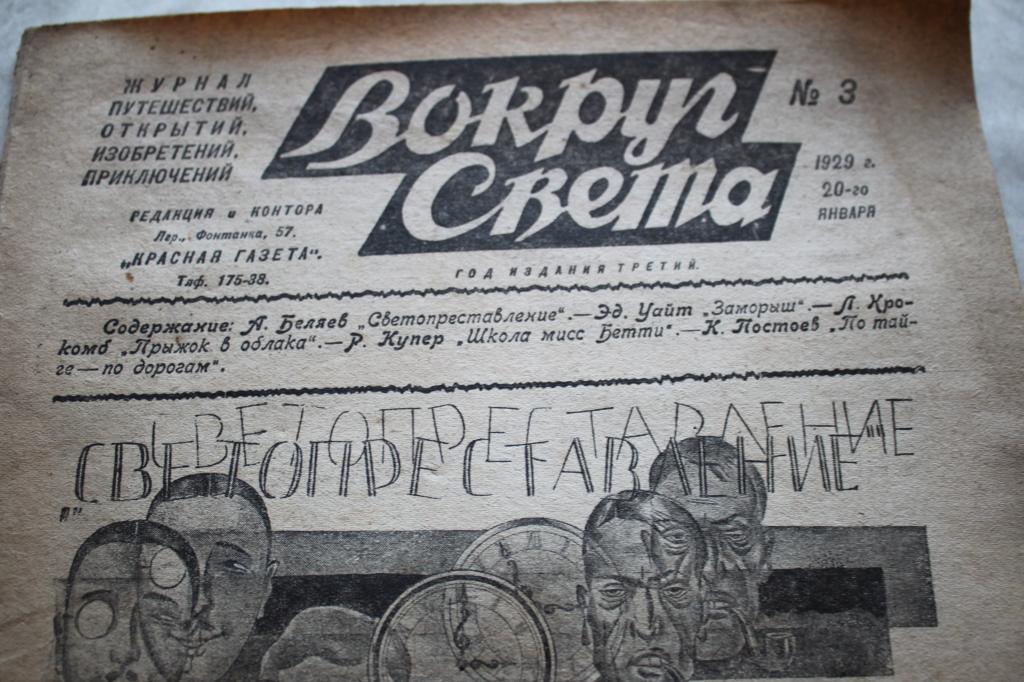 ЖУРНАЛ
ПУТЕШЕСТВИЙ,
ОТКРЫТИЙ,
ИЗОБРЕТЕНИЙ,
ПРИКЛЮЧЕНИЙ
РЕДАКЦИЯ и КОНТОРА
Лгр., Фонтанка, 57.
„КРАСНАЯ ГАЗЕТА".
Тлф. 175-38.
Вокруг
Света
№ 3
1929 г.
20-го
ЯНВАРЯ
ГОД ИЗДАНИЯ ТРЕТИЙ.
Содержание: А. Беляев „Светопреставление".—Эд. Уайт „Заморыш".—Л. Кро-
комб „Прыжок в облака".—Р. Купер „Школа мисс Бетти".—К. Постоев „По тай-
ге—по дорогам".
СВЕТОПРЕСТАВЛЕНИЕ
„СВЕТОПРЕСТАВЛЕНИЕ"